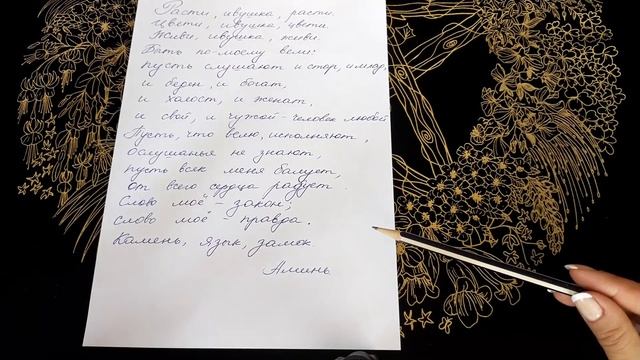 Расти, ивушка, расти.
Цвети, ивушка, цвети.
Живи, ивушка, живи.
Быть по-моему вели:
пусть слушают и стар, и млад,
и беден, и богат,
и холост, и женат,
и свой, и чужой - человек любой.
Пусть, что велю, исполняют,
ослушанья не знают,
пусть всяк меня балует,
от всего сердца радует.
Слово моё - закон;
слово моё - правда.
Камень, язык, замок.
Аминь